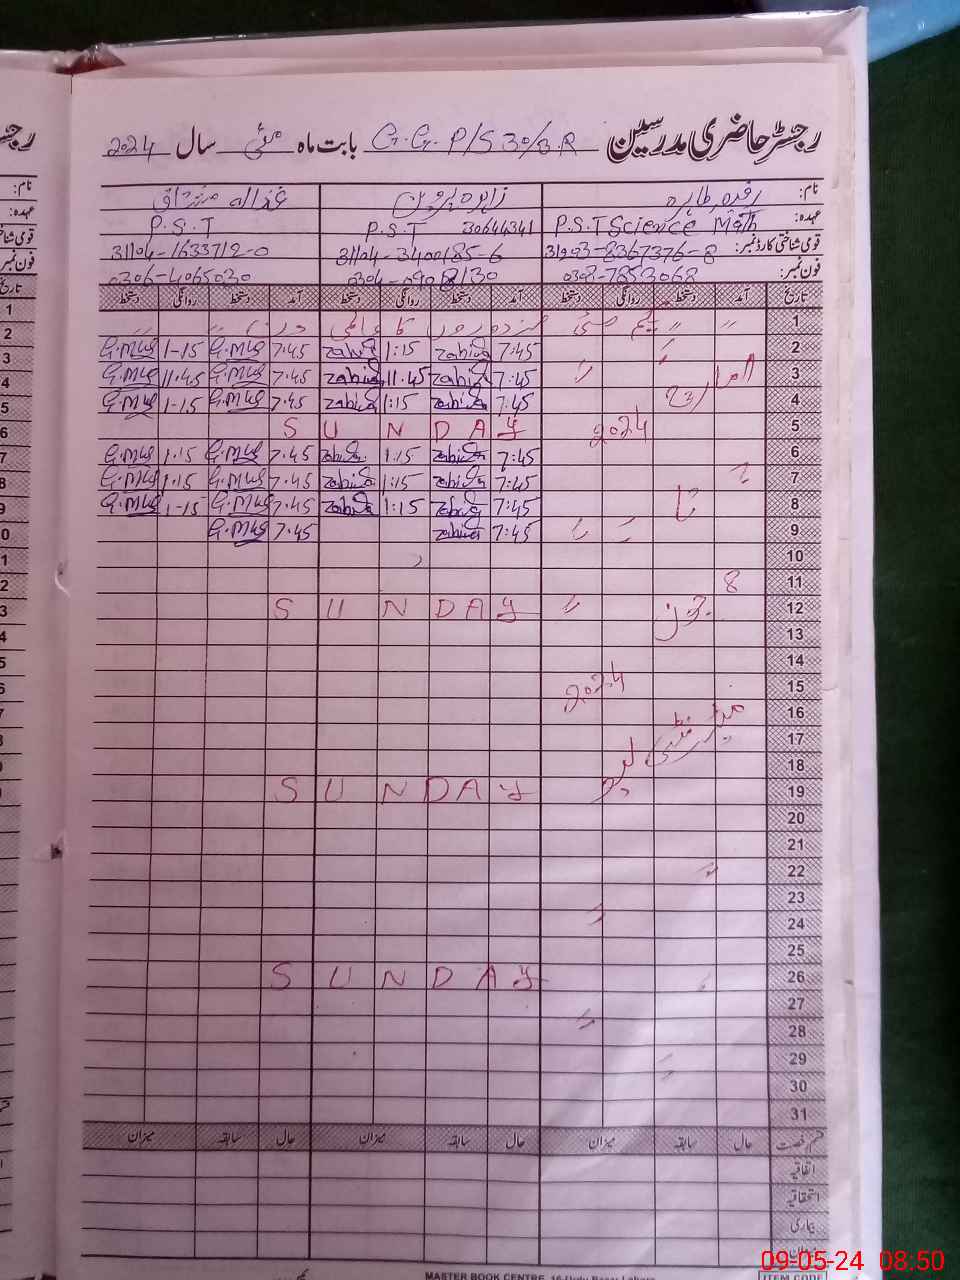 رجسٹر حاضری مدرسین G.G.P/S 30/3.R بابت ماہ مئی سال 2024
نام: زاہدہ پروین غزالہ
عہدہ: P.S.T Science Math P.S.T 30644341 P.S.T
قومی شناختی کارڈ نمبر: 31203-8367376-8 31104-3400185-6 31104-1633712-0
فون نمبر: 0308-7853068 0306-4065030
تاریخ آمد دستخط روانگی دستخط آمد دستخط روانگی دستخط آمد دستخط روانگی دستخط
1 یکم مئی
2 7:45 zahida 1:15 zahida 7.45 G.Mus 1-15 G.Mus
3 7:45 zahida 11.45 zahida 7.45 G.Mus 11.45 G.Mus
4 7:45 zahida 1:15 zahida 7.45 G.Mus 1-15 G.Mus
5 2024 SUNDAY
6 7:45 zahida 1:15 zahida 7.45 G.Mus 1.15 G.Mus
7 7:45 zahida 1:15 zahida 7.45 G.Mus 1.15 G.Mus
8 تا 7:45 zahida 1:15 zahida 7.45 G.Mus 1-15 G.Mus
9 7:45 zahida 7.45 G.Mus
10
11 8
12 جون SUNDAY
13
14
15 2024
16
17 میٹرنٹی لیو
18
19 SUNDAY
20
21
22
23
24
25
26 SUNDAY
27
28
29
30
31
قسم رخصت حال سابقہ میزان حال سابقہ میزان حال سابقہ میزان
اتفاقیہ
استحقاقیہ
بیماری
میزان
MASTER BOOK CENTRE, 16-Urdu Bazar Lahore
ITEM CODE
09-05-24 08:50